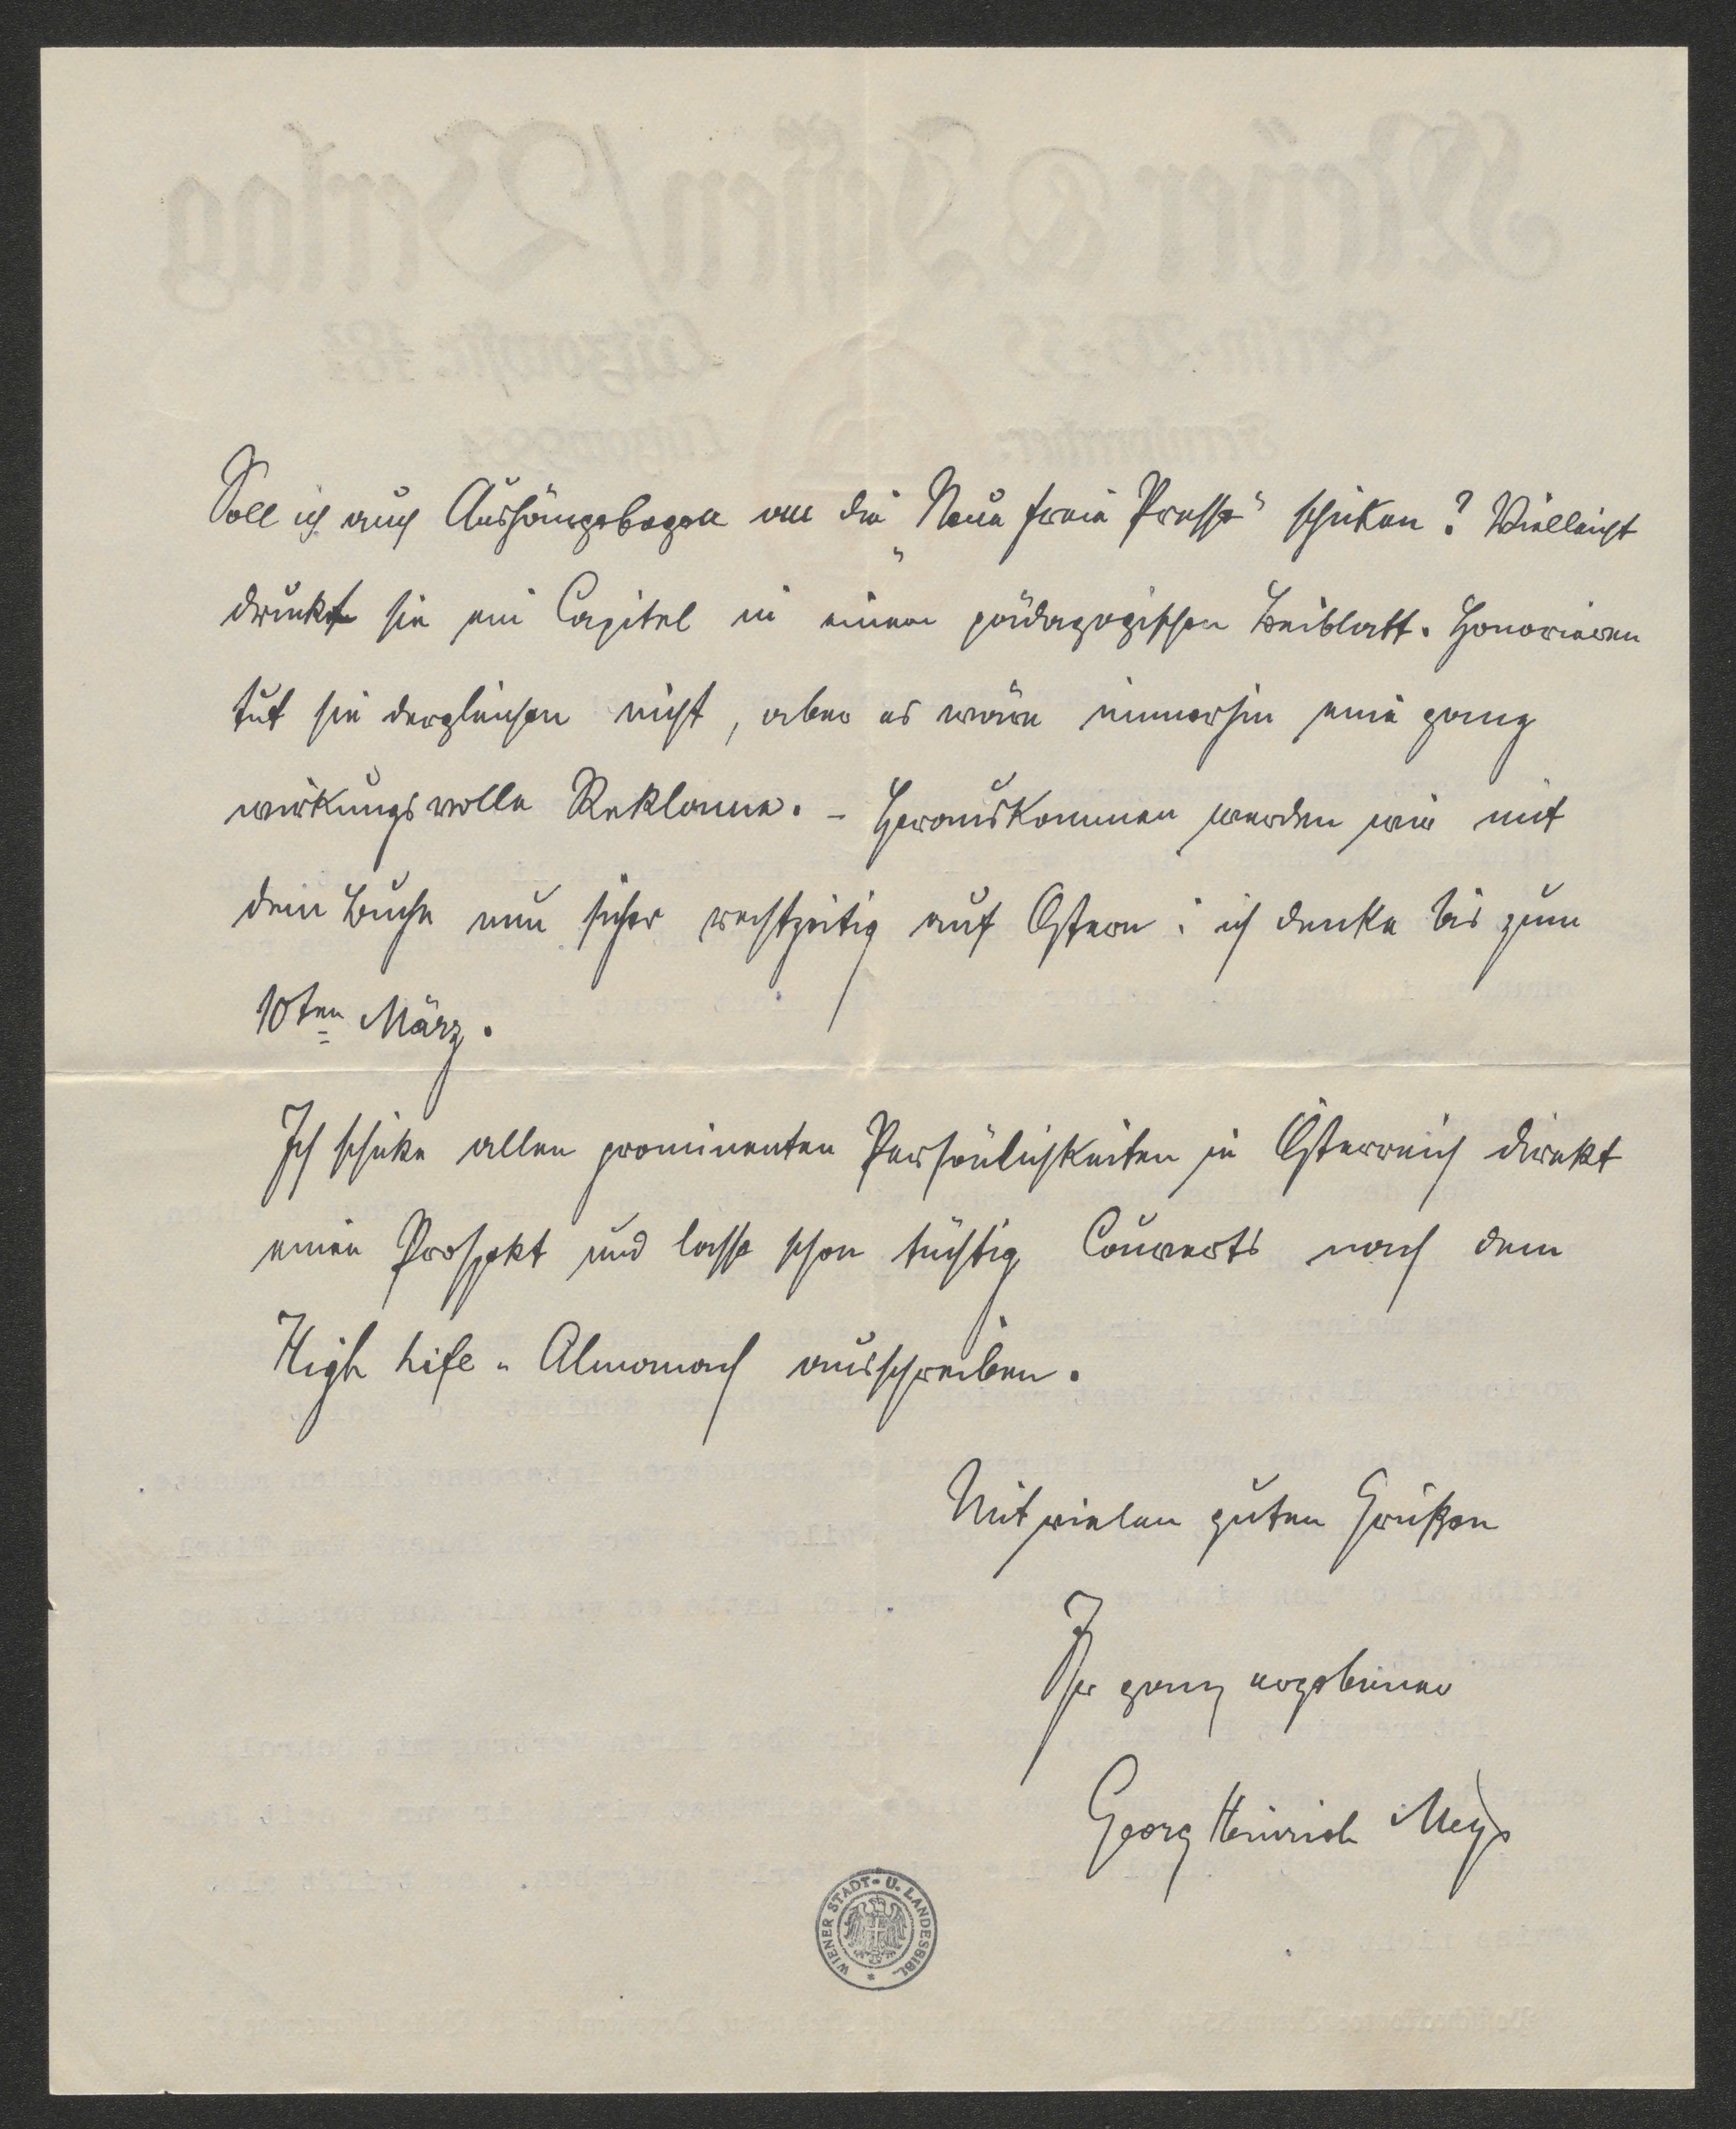 Soll ich auch Aushängebogen an die „Neue freie Presse“ schicken? Vielleicht
druckt sie ein Capitel in einem pädagogischen Beiblatt. Honorieren
tut sie dergleichen nicht, aber es wäre immerhin eine ganz
wirkungsvolle Reklame. – Herauskommen werden wir mit
dem Buche nun sicher rechtzeitig auf Ostern: ich denke bis zum
10ten März.
Ich schicke allen prominenten Persönlichkeiten in Österreich direkt
einen Prospekt und lasse schon tüchtig Couverts nach dem
High Life-Almanach ausschreiben.
Mit vielen guten Grüßen
Ihr ganz ergebener
Georg Heinrich Meyer
WIENER STADT- U. LANDESBIBL.